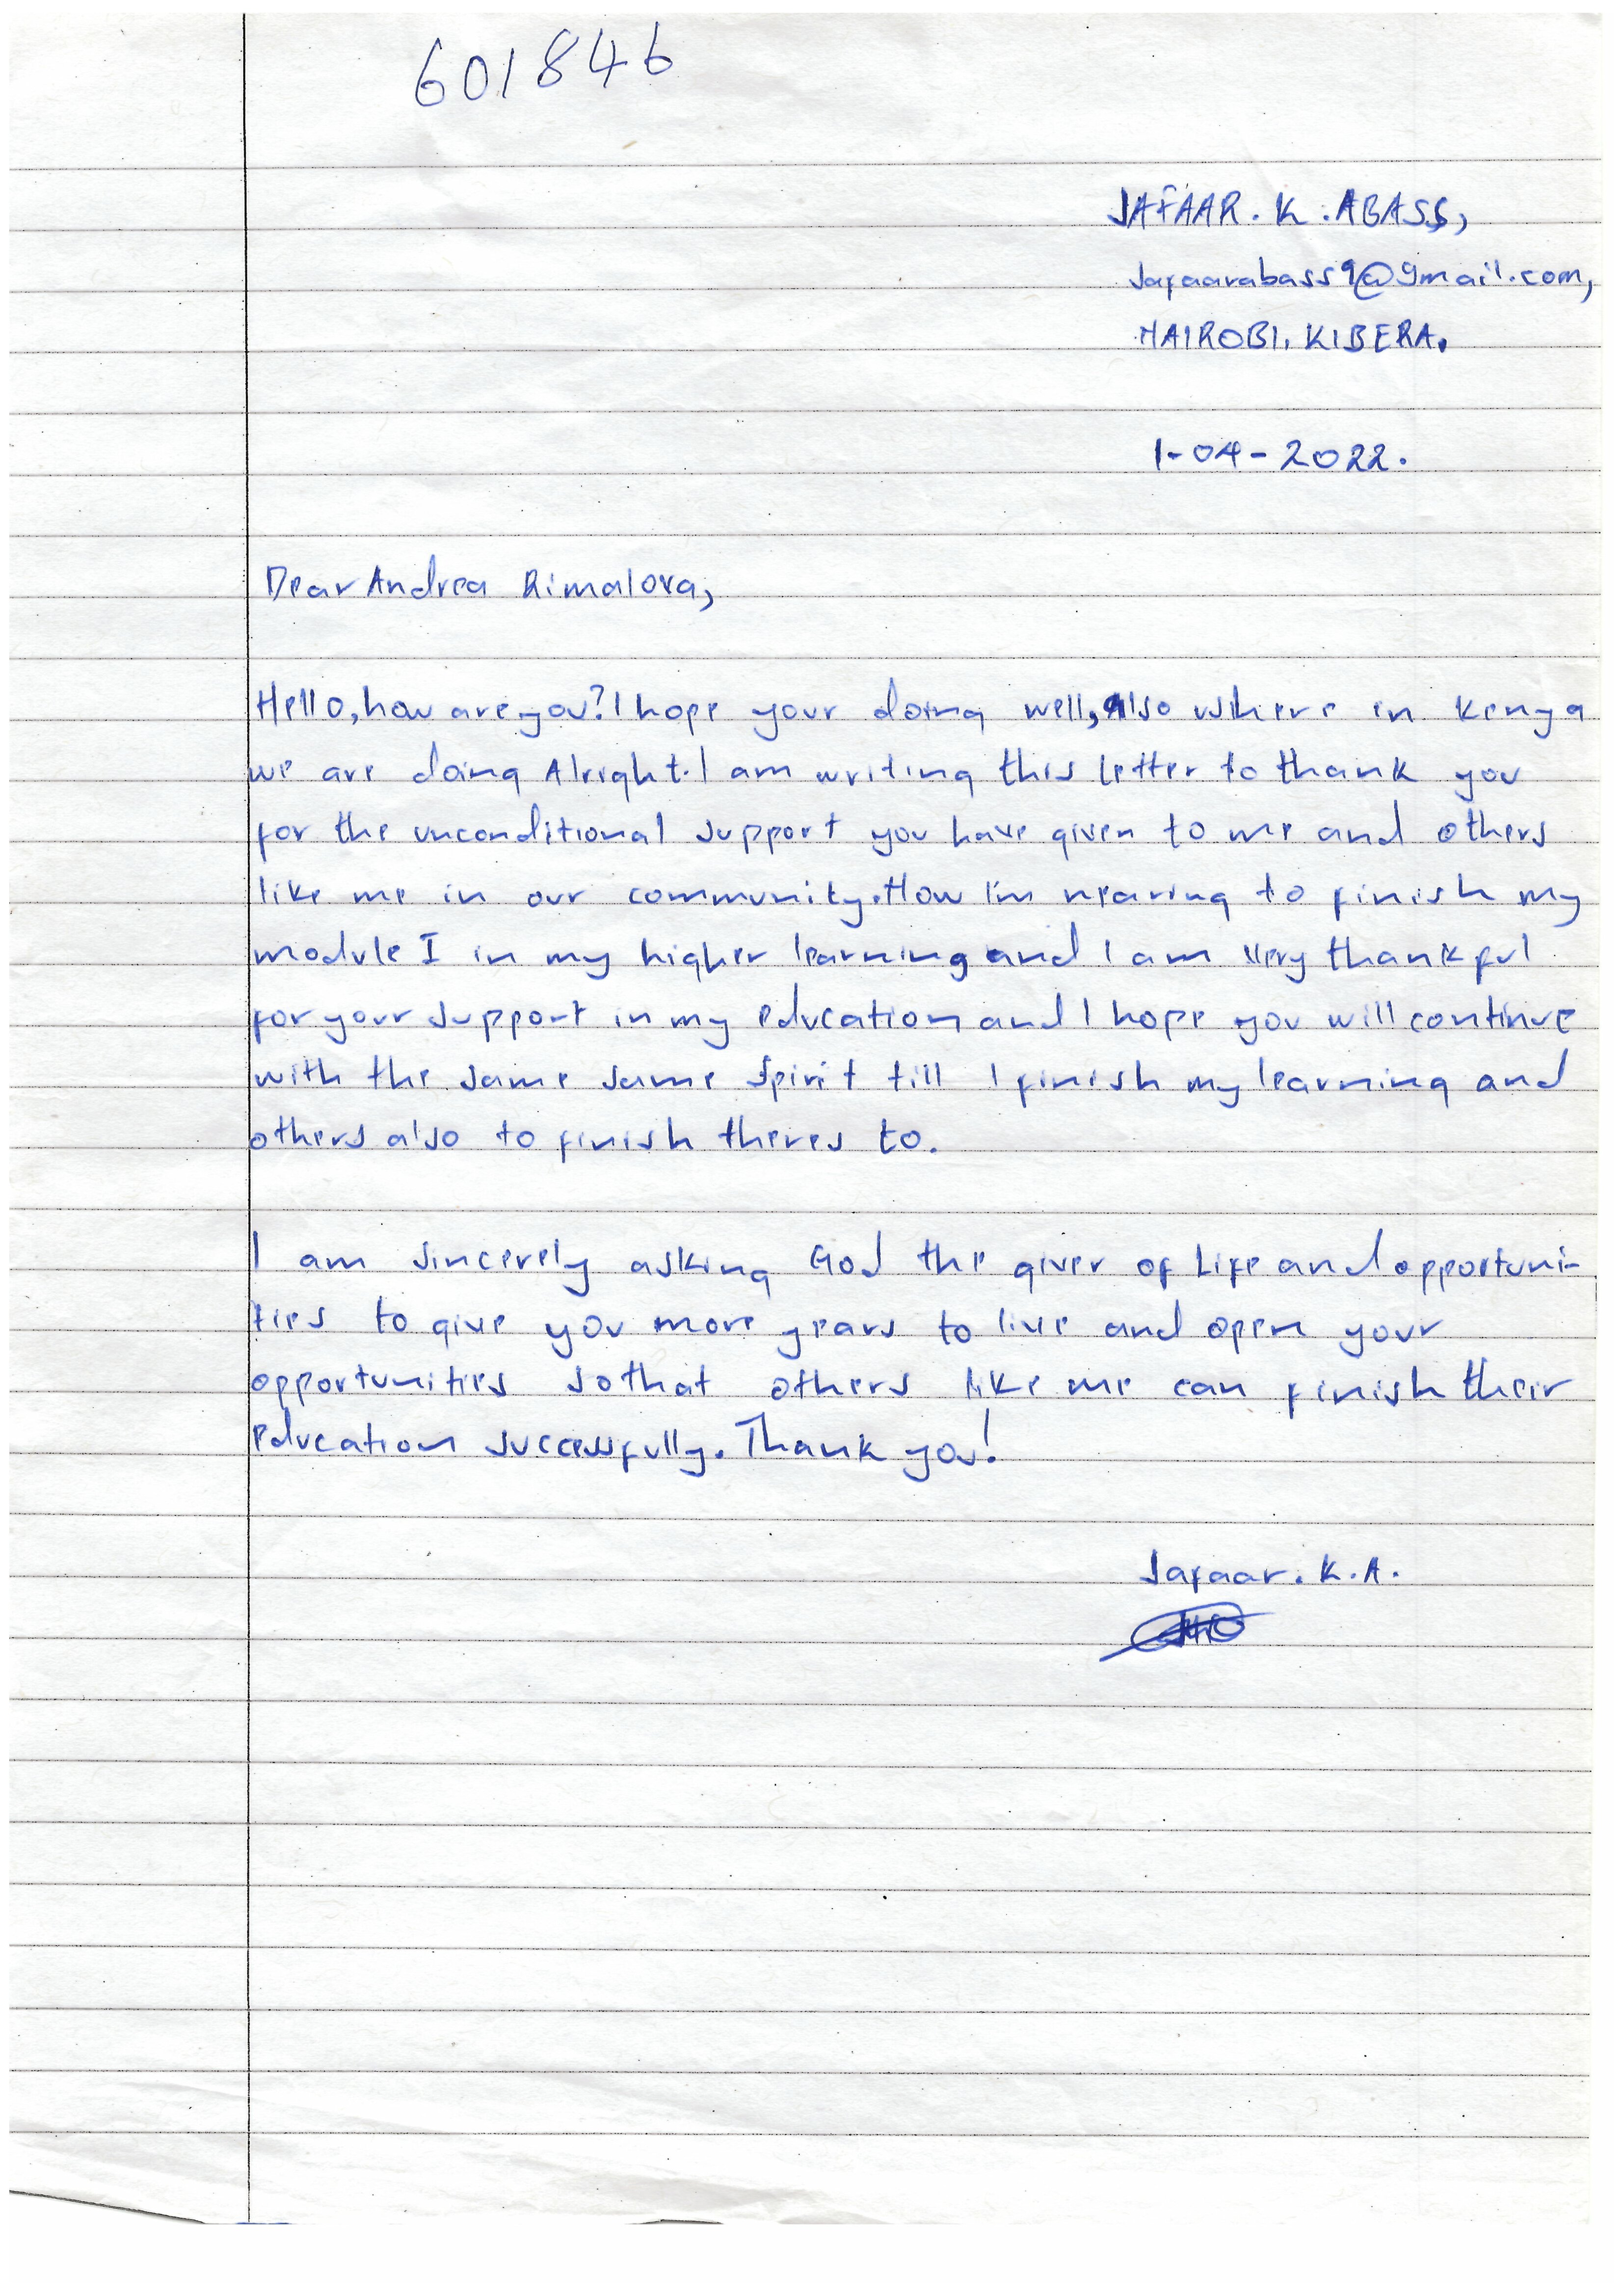 601846
JAFAAR. K. ABASS,
Jafaarabass9@gmail.com,
NAIROBI, KIBERA.
1-04-2022.
Dear Andrea Rimalova,
Hello, how are you? I hope your doing well, also us here in Kenya
we are doing Alright. I am writing this letter to thank you
for the unconditional support you have given to me and others
like me in our community. Now I'm nearing to finish my
module I in my higher learning and I am very thankful
for your support in my education and I hope you will continue
with the same same spirit till I finish my learning and
others also to finish theres to.
I am sincerely asking God the giver of Life and opportuni-
ties to give you more years to live and open your
opportunities so that others like me can finish their
education successfully. Thank you!
Jafaar. K. A.